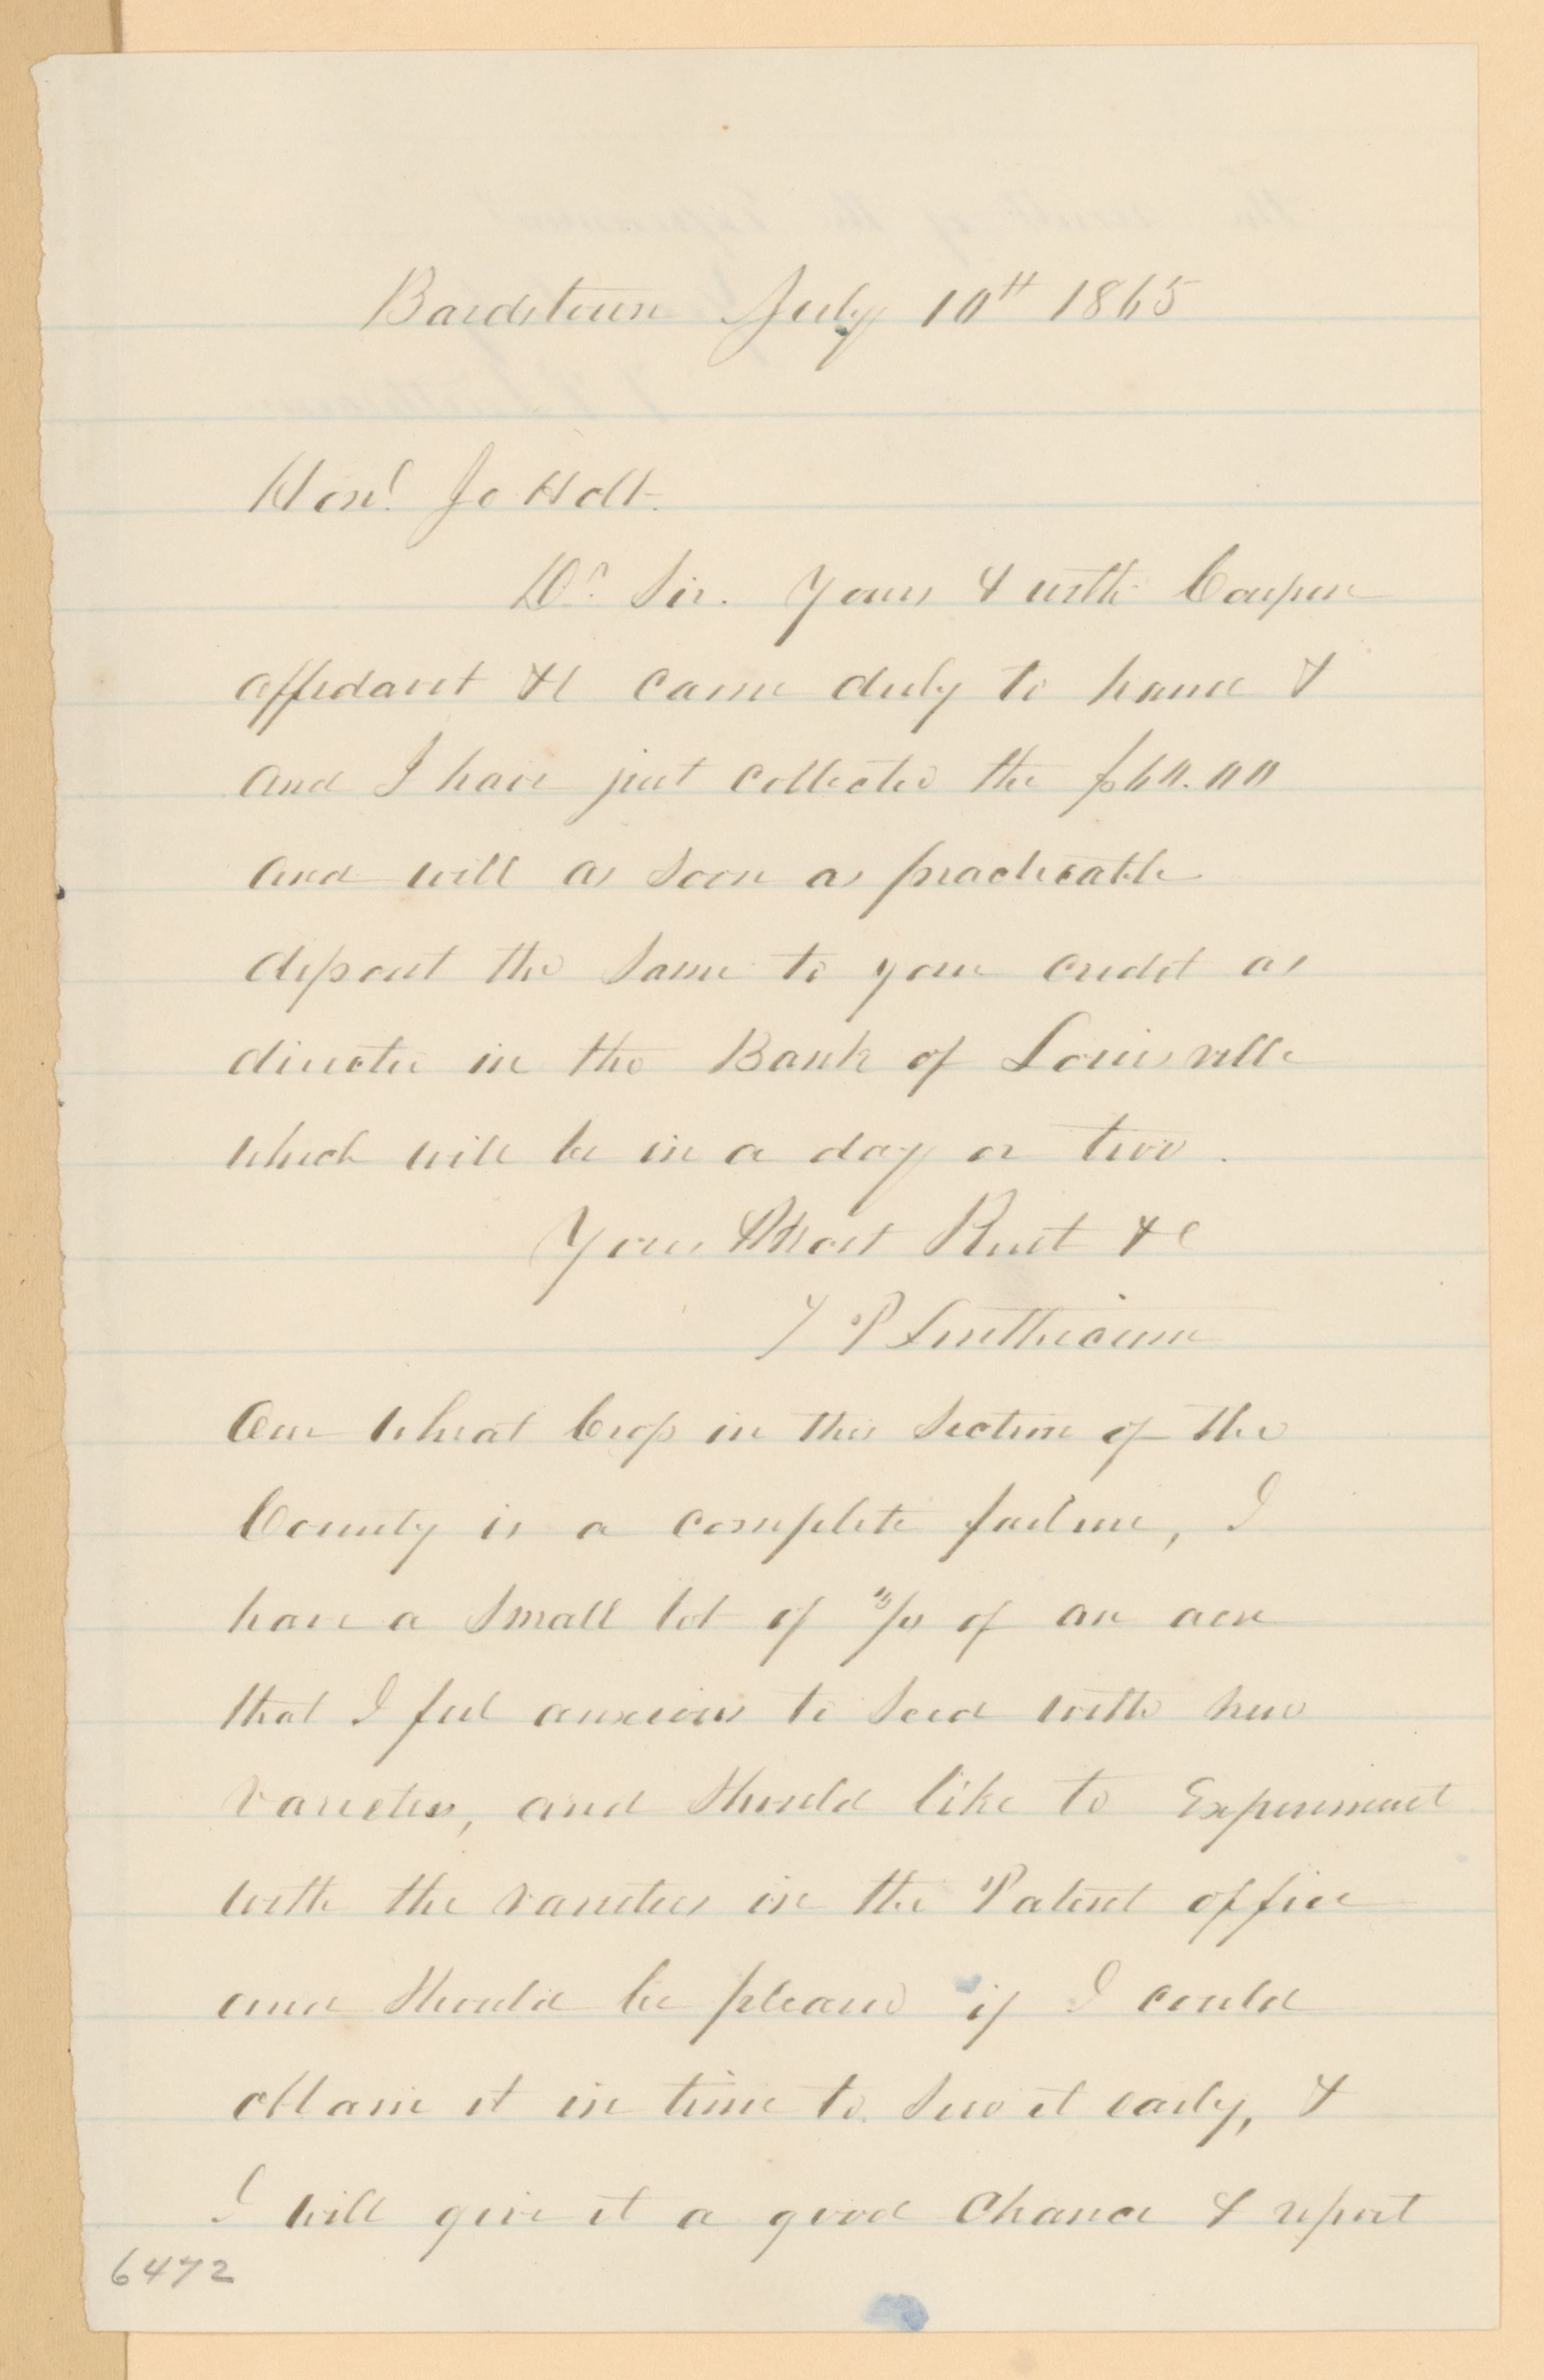 Bardstown July 10th 1865
Honl. Jo Holt.
Dr. Sir. Yours & with Coupon
affidavit &c came duly to hand &
and I have just collected the $60.00
and will as soon as practicable
deposit the same to your credit as
directed in the Bank of Louisville
which will be in a day or two.
Your Most Respt &c
T P Linthicum
Our Wheat Crop in this Section of the
County is a complete failure, I
have a small lot of of an acre
that I feel anxious to seed with new
varieties, and should like to Experiment
with the varieties in the Patent office
and should be pleased if I could
obtain it in time to sow it early, &
I will give it a good chance & report
6472